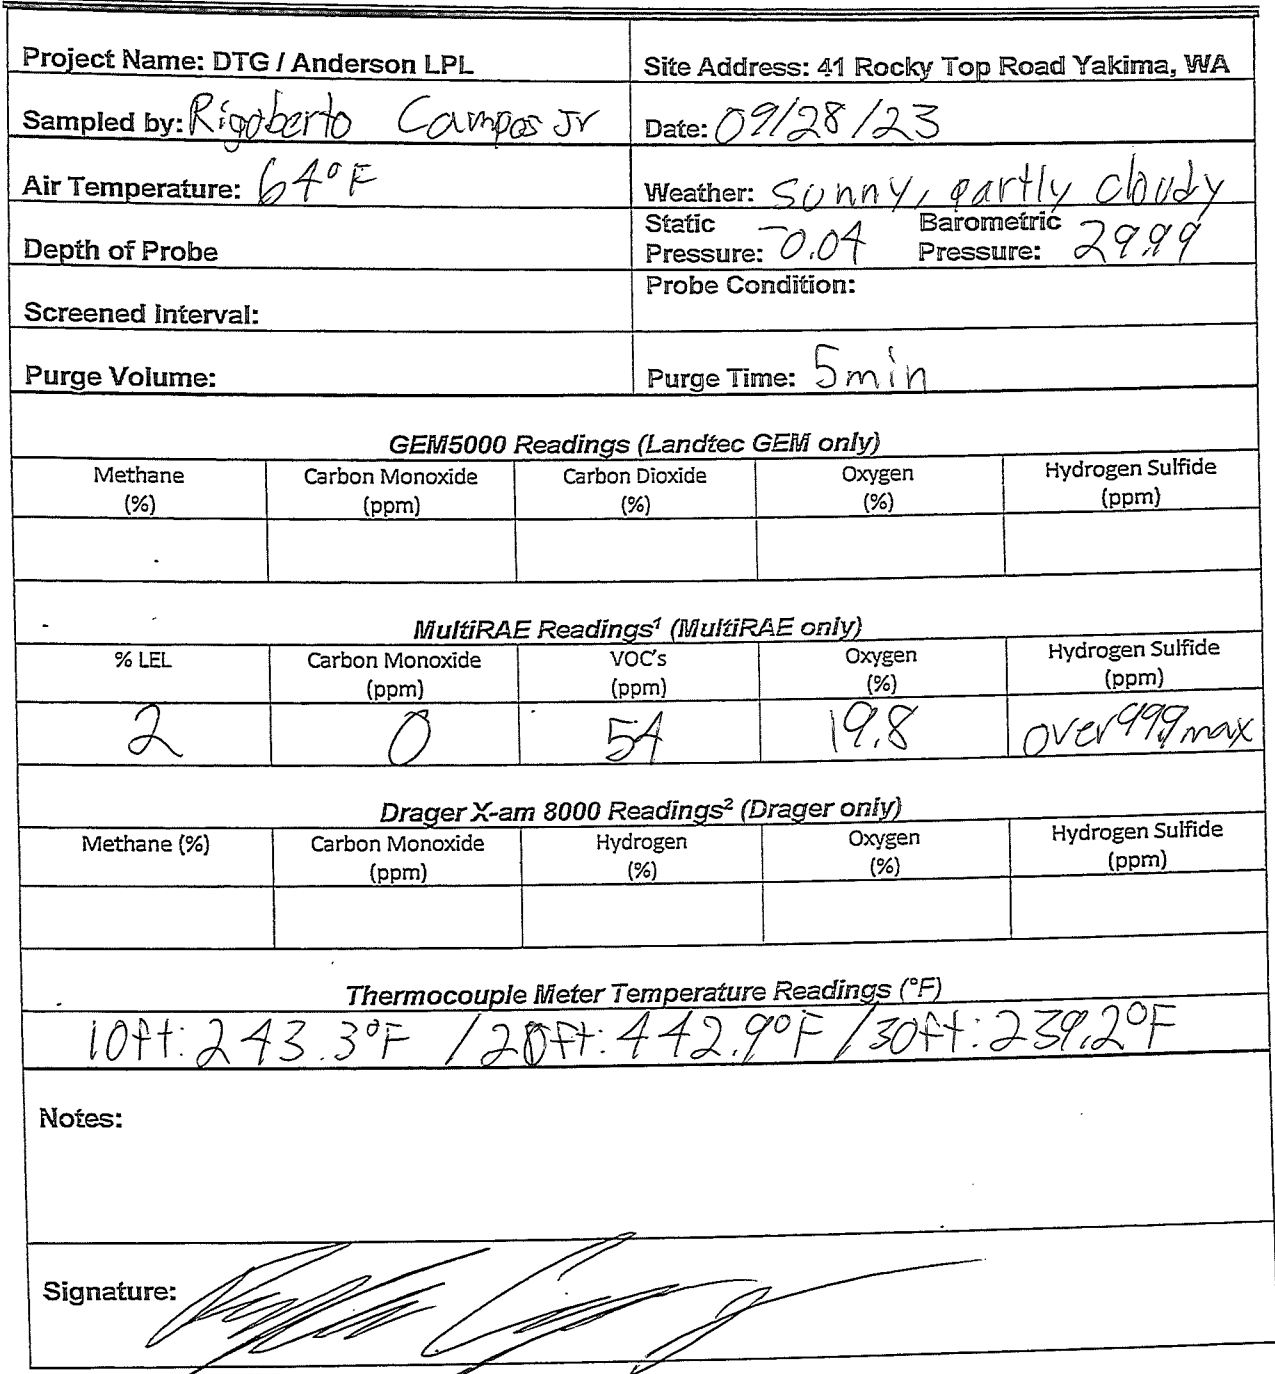 Project Name: DTG / Anderson LPL
Site Address: 41 Rocky Top Road Yakima, WA
Sampled by: Rigoberto Campos Jr
Date: 09/28/23
Air Temperature: 64°F
Weather: sunny, partly cloudy
Depth of Probe
Static Pressure: -0.04 Barometric Pressure: 29.99
Screened Interval:
Probe Condition:
Purge Volume:
Purge Time: 5min
GEM5000 Readings (Landtec GEM only)
Methane (%) Carbon Monoxide (ppm) Carbon Dioxide (%) Oxygen (%) Hydrogen Sulfide (ppm)
MultiRAE Readings¹ (MultiRAE only)
% LEL Carbon Monoxide (ppm) VOC's (ppm) Oxygen (%) Hydrogen Sulfide (ppm)
2 0 54 19.8 over 99.9 max
Drager X-am 8000 Readings² (Drager only)
Methane (%) Carbon Monoxide (ppm) Hydrogen (%) Oxygen (%) Hydrogen Sulfide (ppm)
Thermocouple Meter Temperature Readings (°F)
10ft: 243.3°F / 20ft: 442.9°F / 30ft: 239.2°F
Notes:
Signature: